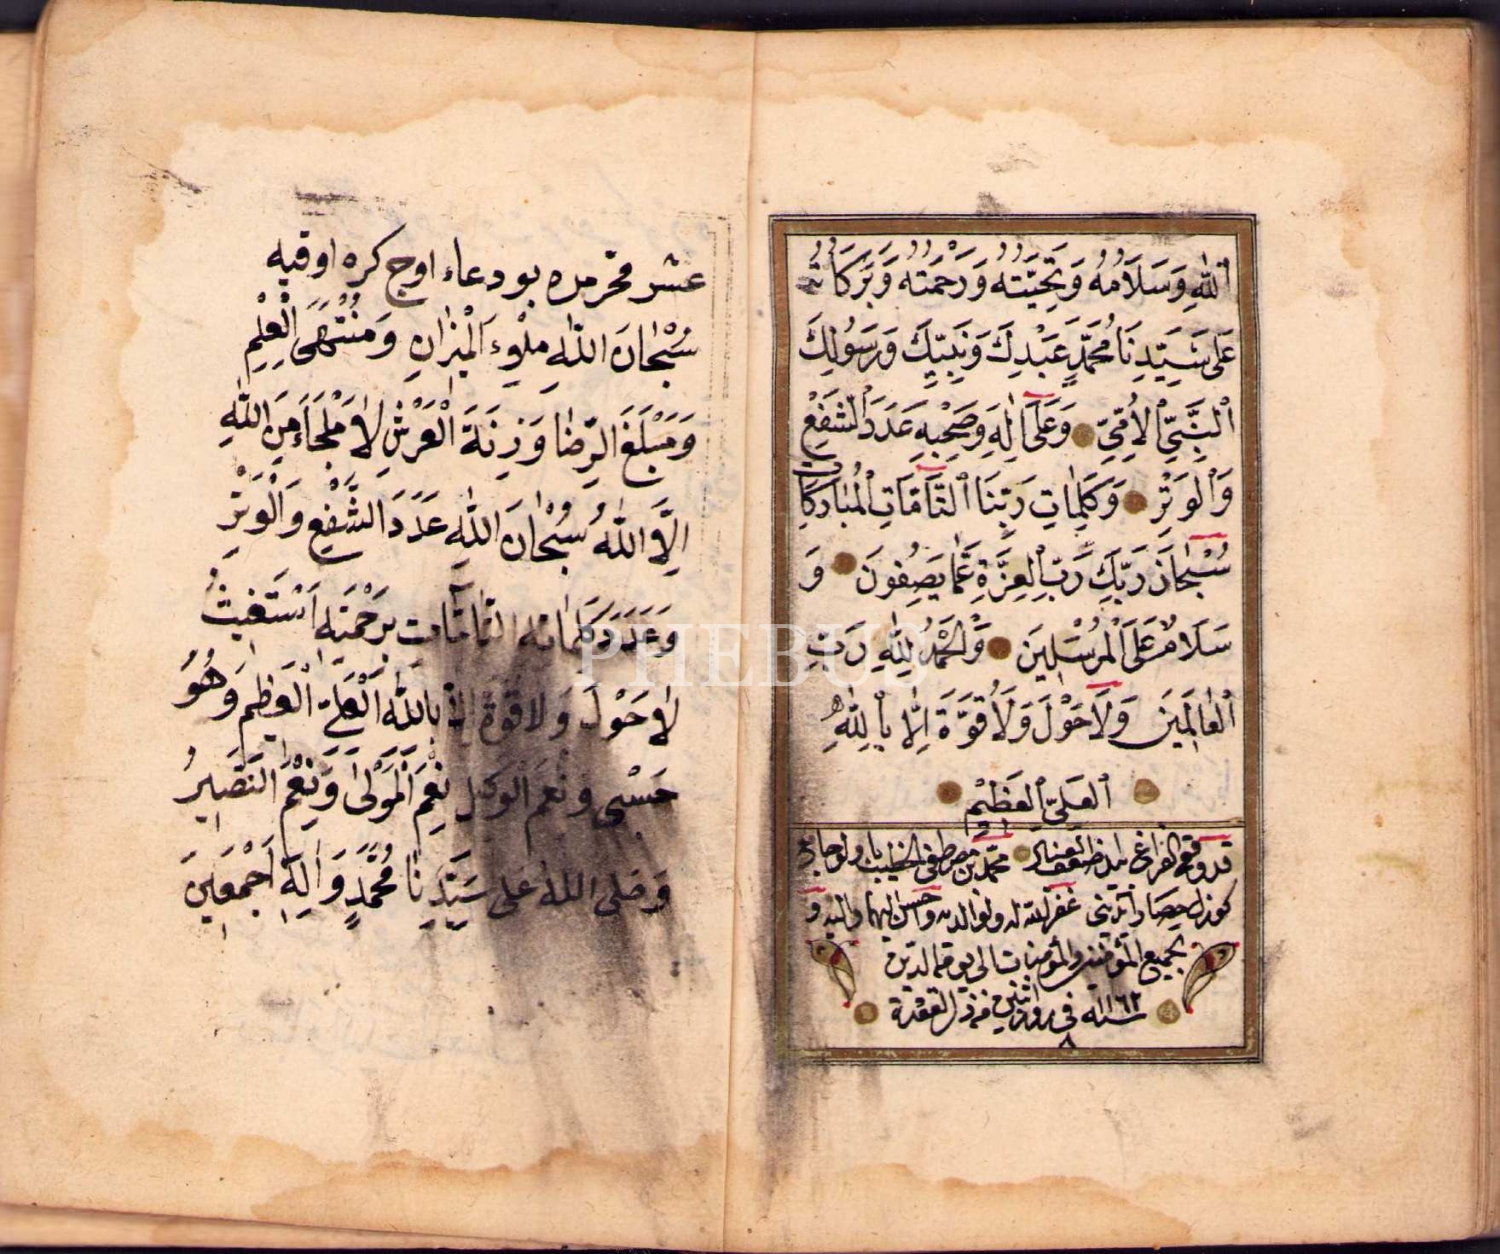 اللّٰهِ وَسَلَامُهُ وَتَحِيَّتُهُ وَرَحْمَتُهُ وَبَرَكَاتُهُ
عَلٰى سَيِّدِنَا مُحَمَّدٍ عَبْدِكَ وَنَبِيِّكَ وَرَسُولِكَ
النَّبِيِّ الْاُمِّيِّ وَعَلٰى اٰلِهِ وَصَحْبِهِ عَدَدَ الشَّفْعِ
وَالْوَتْرِ وَكَلِمَاتِ رَبِّنَا التَّامَّاتِ الْمُبَارَكَاتِ
سُبْحَانَ رَبِّكَ رَبِّ الْعِزَّةِ عَمَّا يَصِفُونَ وَ
سَلَامٌ عَلَى الْمُرْسَلِينَ وَالْحَمْدُ لِلّٰهِ رَبِّ
الْعَالَمِينَ وَلَا حَوْلَ وَلَا قُوَّةَ اِلَّا بِاللّٰهِ
الْعَلِيِّ الْعَظِيمِ
قد وقع الفراغ محمد بن مصطفى الخطيب
غفر الله له ولوالديه واحسن اليهما واليه و
لجميع المؤمنين والمؤمنات الى يوم الدين
سنه ١١٦٢ فى ذى القعدة
٨
عشر محرمده بو دعاء اوج كره اوقيه
سُبْحَانَ اللّٰهِ مِلْءَ الْمِيزَانِ وَمُنْتَهَى الْعِلْمِ
وَمَبْلَغَ الرِّضَا وَزِنَةَ الْعَرْشِ لَا مَلْجَاَ مِنَ اللّٰهِ
اِلَّا اللّٰهُ سُبْحَانَ اللّٰهِ عَدَدَ الشَّفْعِ وَالْوَتْرِ
وَعَدَدَ كَلِمَاتِهِ التَّامَّات بِرَحْمَتِهِ اَسْتَغِيثُ
لَا حَوْلَ وَلَا قُوَّةَ اِلَّا بِاللّٰهِ الْعَلِيِّ الْعَظِيمِ وَهُوَ
حَسْبِى وَنِعْمَ الْوَكِيل نِعْمَ الْمَوْلٰى وَنِعْمَ النَّصِيرُ
وَصَلَّى اللّٰهُ عَلٰى سَيِّدِنَا مُحَمَّدٍ وَاٰلِهِ اَجْمَعِينَ
PHEBUS